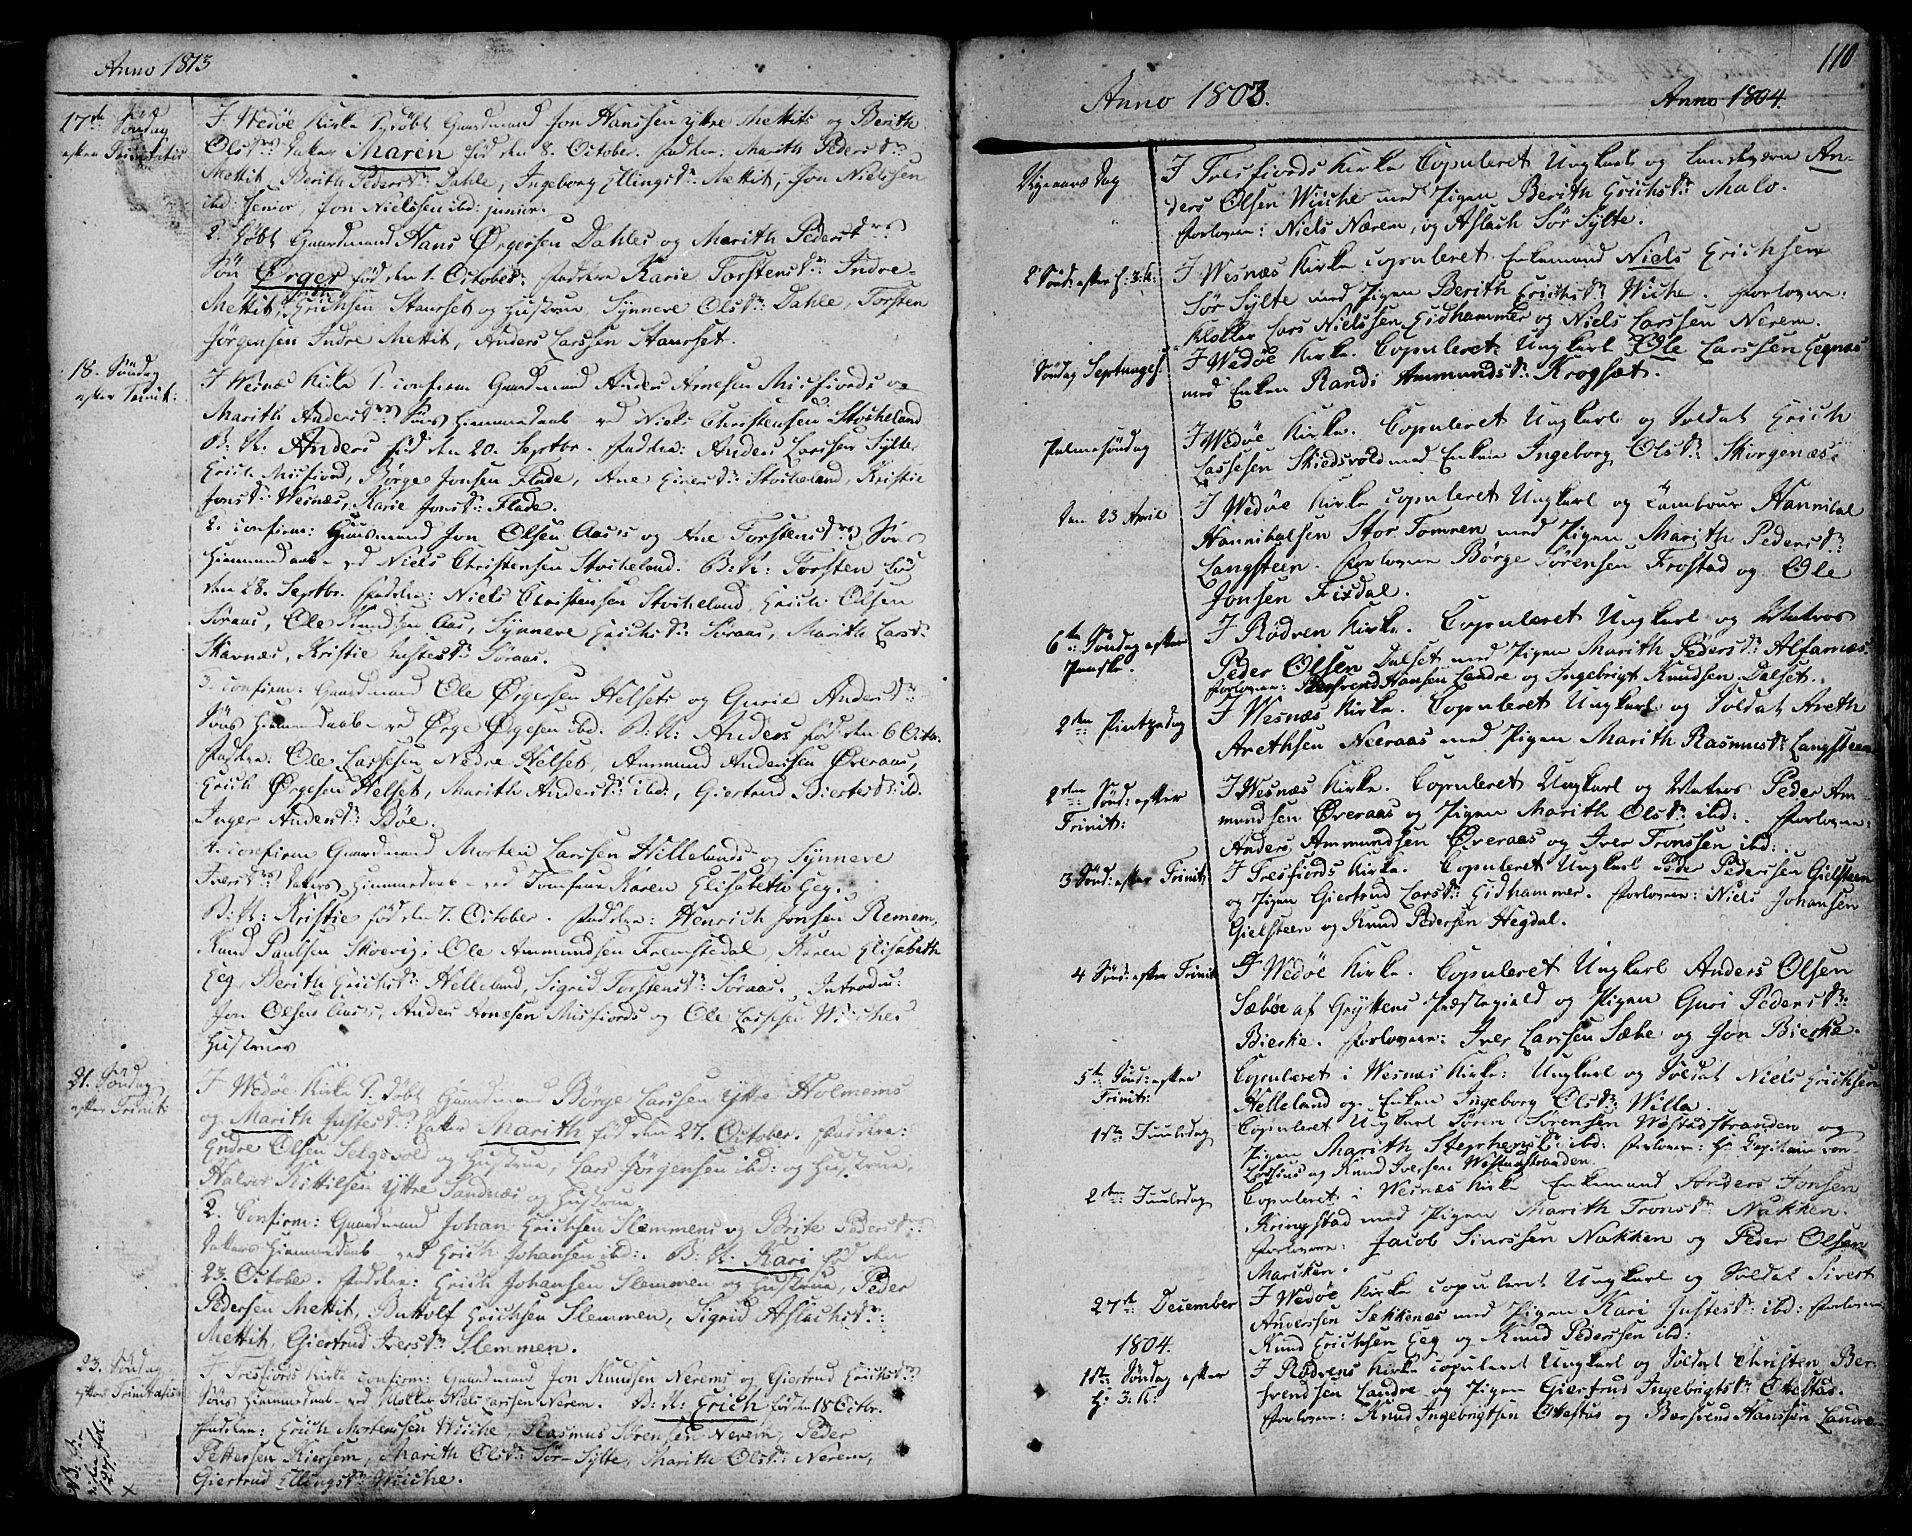 Anno 1813
17de Sönd
Söndag
efter Trinitatis
I Wedöe Kirke T. döbt Gaardmand Jon Hanssen yttre Mettits og Berith
Olsdrs Datter Maren föd den 8. October. Faddere: Marith Pedersdr
Mettit, Berith Pedersdr: Dahle, Ingeborg Ellingsdr: Mettit, Jon Nielssen
ibd: senior, Jon Nielssen ibd: junior.
2. Döbt Gaardmand Hans Ørgersen Dahles og Marith Pedersdrs
Sön Ørger föd den 1. October: Faddere Karie Torstensdr: Indre-
Mettit, Erichsen Staurset og Hustrue, Synnere Olsdr: Dahle, Torsten
Jörgensen Indre Mettit, Anders Larssen Staurset.
18. Söndag
efter Trinit:
I Wesnæs Kirke 1. confirm Gaardmand Anders Arnesen Misfiords og
Marith Andersdrs Söns Hiemmedaab ved Niels Christensen Stocheland
B: N: Anders föd den 20. Septbr. Faddere: Anders Larssen Sylte
Erich Misfiord, Börge Jonsen Flade, Ane Einersdr: Stocheland, Kristie
Jonsdr: Wesnæs, Karie Jonsdr: Flade.
2. confirm: Huusmand Jon Olsen Aas og Ane Torstensdrs Söns
Hiemmedaab ved Niels Christensen Stocheland. B: N: Torsten föd
den 28. Septbr. Faddere: Niels Christensen Stocheland, Erich Olsen
Söraas, Ole Knudsen Aas, Synnere Erichsdr: Söraas, Marith Larsdr:
Skavnæs, Kristie Justesdr: Söraas.
3. confirm: Gaardmand Ole Ørgersen Helsets og Gurie Andersdrs
Söns Hiemmedaab ved Ørge Ørgesen ibd. B: N: Anders föd den 6 Octbr.
Faddere. Ole Lassesen Nedre Helset, Ammund Anderssen Øveraas,
Erich Ørgesen Helset, Marith Andersdr: ibd:, Giertrud Biertesdr ibd.
Inger Andersdr: Böe.
4. confirm Gaardmand Morten Larssen Hellelands og Synneve
Iversdrs Datters Hiemmedaab ved Jomfrue Karen Elisabeth Eeg.
B: N: Kristie föd den 7. October. Faddere: Henrich Jonsen Remem,
Knud Paulsen Skorvig, Ole Ammundsen Fremstedal, Karen Elisabeth
Eeg Berith Erichsdr: Helleland, Sigrid Torstensdr: Söraas. Introdu:
Jon Olsens Aas, Anders Arnesen Misfiords og Ole Lassesen Wiiches
Hustruer
21. Söndag
efter Trinit:
I Wedöe Kirke 1. döbt Gaardmand Börge Larssen yttre Holmems
og Marith Justesdrs Datter Marith föd den 27. October. Faddere:
Endre Olsen Selgevold og Hustrue, Lars Jörgensen ibd: og Hustrue,
Halvor Kittilsen yttre Sandnæs og Hustrue
2. Confirm: Gaardmand Johan Erichsen Slemmens og Brite Pedersdrs
Datters Hiemmedaab ved Erich Johansen ibd: B: N: Kari föd den
23. October. Faddere: Erich Johansen Slemmen og Hustrue, Peder
Pedersen Mettit, Buttolf Erichsen Slemmen, Sigrid Aslachsdr:
Mettit, Giertrud Iversdr: Slemmen.
23. Söndag
efter Trinitatis
I Tresfiords Kirke confirm: Gaardmand Jon Knudsen Nerems og Giertrud Erichsdrs
Söns Hiemmedaab ved Klokker Niels Larssen Nerem. B: N: Erich föd den 18 Octbr.
Faddere: Erich Mortenssen Wiiche, Rasmus Sörensen Nerem, Peder
Pettersen Kiersem, Marith Olsdr: Sör-Sylte, Marith Olsdr: Nerem,
Giertrud Ellingsdr: Wiiche.
127.
110
Anno 1803.
Anno 1804.
Nyeaars Dag
I Tresfiords Kirke Copuleret Ungkarl og Landværn An-
ders Olsen Wiiche med Pigen Berith Erichsdr: Malo.
Forlovere: Niels Nærem, og Aslach Sör Sylte.
2 Sönd: efter H. 3. K:
I Wesnæs Kirke copuleret Enkemand Niels Erichsen
Sör Sylte med Pigen Berith Erichsdr: Wiche. Forlovere:
Klokker Lars Nielssen Gidhammer og Niels Larssen Nerem.
Söndag Septuages:
I Wedöe Kirke. Copuleret Ungkarl Ole Larssen Gegnæs
med Enken Randi Ammundsdr: Krogsæt.
Palmesöndag
I Wedöe Kirke. Copuleret Ungkarl og Soldat Erich
Lassesen Skiedsvold med Enken Ingeborg Olsdr: Skorgenæs.
Den 23 April
I Wedöe Kirke copuleret Ungkarl og Tambour Hannibal
Hannibalsen Stor Tomren med Pigen Marith Pedersdr:
Langsteen. Forlovere Börge Sörensen Frostad og Ole
Jonsen Fixdal.
6te Söndag efter
Paaske.
I Rödven Kirke. Copuleret Ungkarl og Matros
Peder Olsen Dalset med Pigen Marith Pedersdr: Alfarnæs.
Forlovere: Bersvend Hansen Landre og Ingebrigt Knudsen Dalset.
2den Pintzedag
I Wesnæs Kirke. Copuleret Ungkarl og Soldat Areth
Arethsen Neeraas med Pigen Marith Rasmusdr: Langsteen
2den Sönd: efter
Trinit:
I Wesnæs Kirke. Copuleret Ungkarl og Matros Peder Am-
mundsen Øveraas og Pigen Marith Olsdr: ibd: Forlovere:
Anders Ammundsen Øveraas og Iver Tronssen ibd:
3 Sönd: efter Trinit:
I Tresfiords Kirke. Copuleret Ungkarl Peder Pedersen Gielsteen
og Pigen Giertrud Larsdr: Gidhammer. Forlovere: Niels Johansen
Gielsteen og Knud Pedersen Hegdal.
4 Sönd: efter Trinit
I Wedöe Kirke. Copuleret Ungkarl Anders Olsen
Sæböe af Gryttens Præstegield og Pigen Guri Pedersdr:
Bierke. Forlovere: Iver Larssen Sæbe og Jon Bierke.
5te Sönd: efter
Trinit:
Copuleret i Wesnæs Kirke: Ungkarl og Soldat Niels Erichsen
Helleland og Enken Ingeborg Olsdr: Willa.
1ste Juuledag
Copuleret Ungkarl Sören Sörensen Wæstadstranden og
Pigen Marith Stephensdr: ibd: Forlovere: Hr Capitain von
og Knud Iversen Wæstadstranden.
2den Juuledag
Copuleret i Wesnæs Kirke Enkemand Anders Jonsen
Kringstad med Pigen Marith Tronsdr: Nakken.
Forlovere: Jacob Sinessen Nakken og Peder Olsen
Mariken.
27de December
I Wedöe Kirke copuleret Ungkarl og Soldat Sivert
Anderssen Sækkenæs med Pigen Kari Justesdr: ibd: Forlovere
Knud Erichsen Eeg og Knud Pederssen ibd:
1804.
1ste Söndag efter
H: 3: K:
I Rödvens Kirke copuleret Ungkarl og Soldat Christen Ber-
svendsen Landre og Pigen Giertrud Ingebrigtsdr: Okestus.
Forlovere: Knud Ingebrigtsen Okestus og Bersvend Hanssen Landre